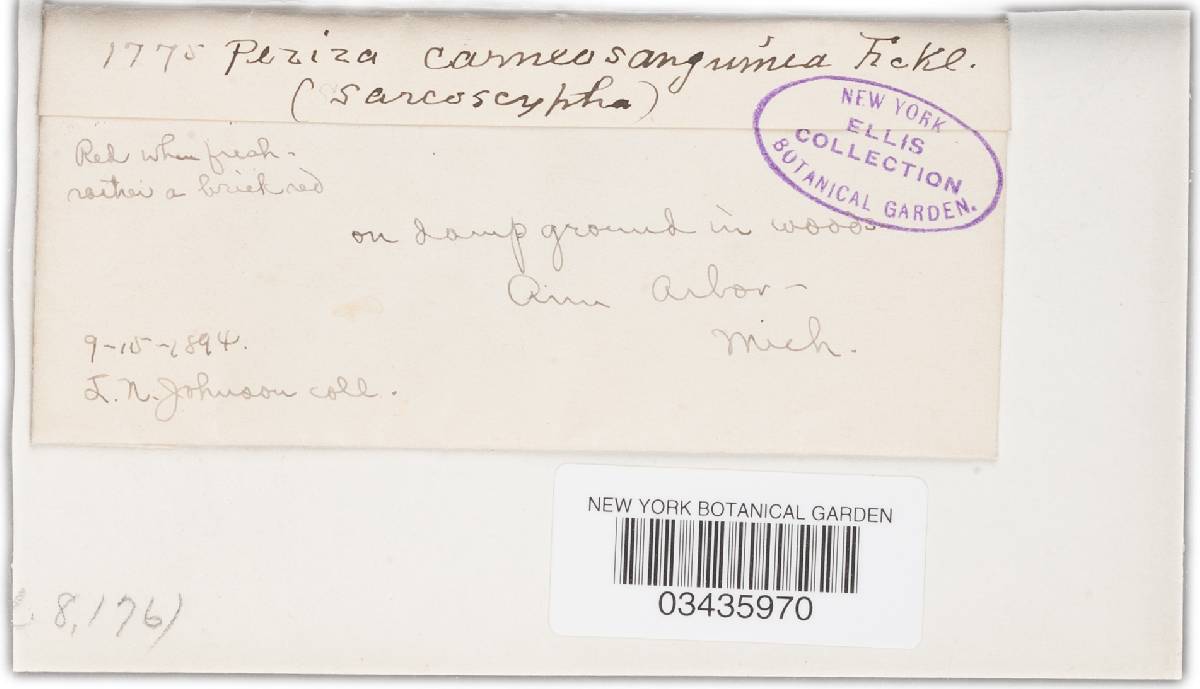 1775 Peziza carneosanguinea Fckl.
(Sarcoscypha)
NEW YORK
ELLIS
COLLECTION
BOTANICAL GARDEN.
Red when fresh -
rather a brick red
on damp ground in woods
Ann Arbor -
Mich.
9-15-1894.
L. N. Johnson coll.
NEW YORK BOTANICAL GARDEN
03435970
8,176)